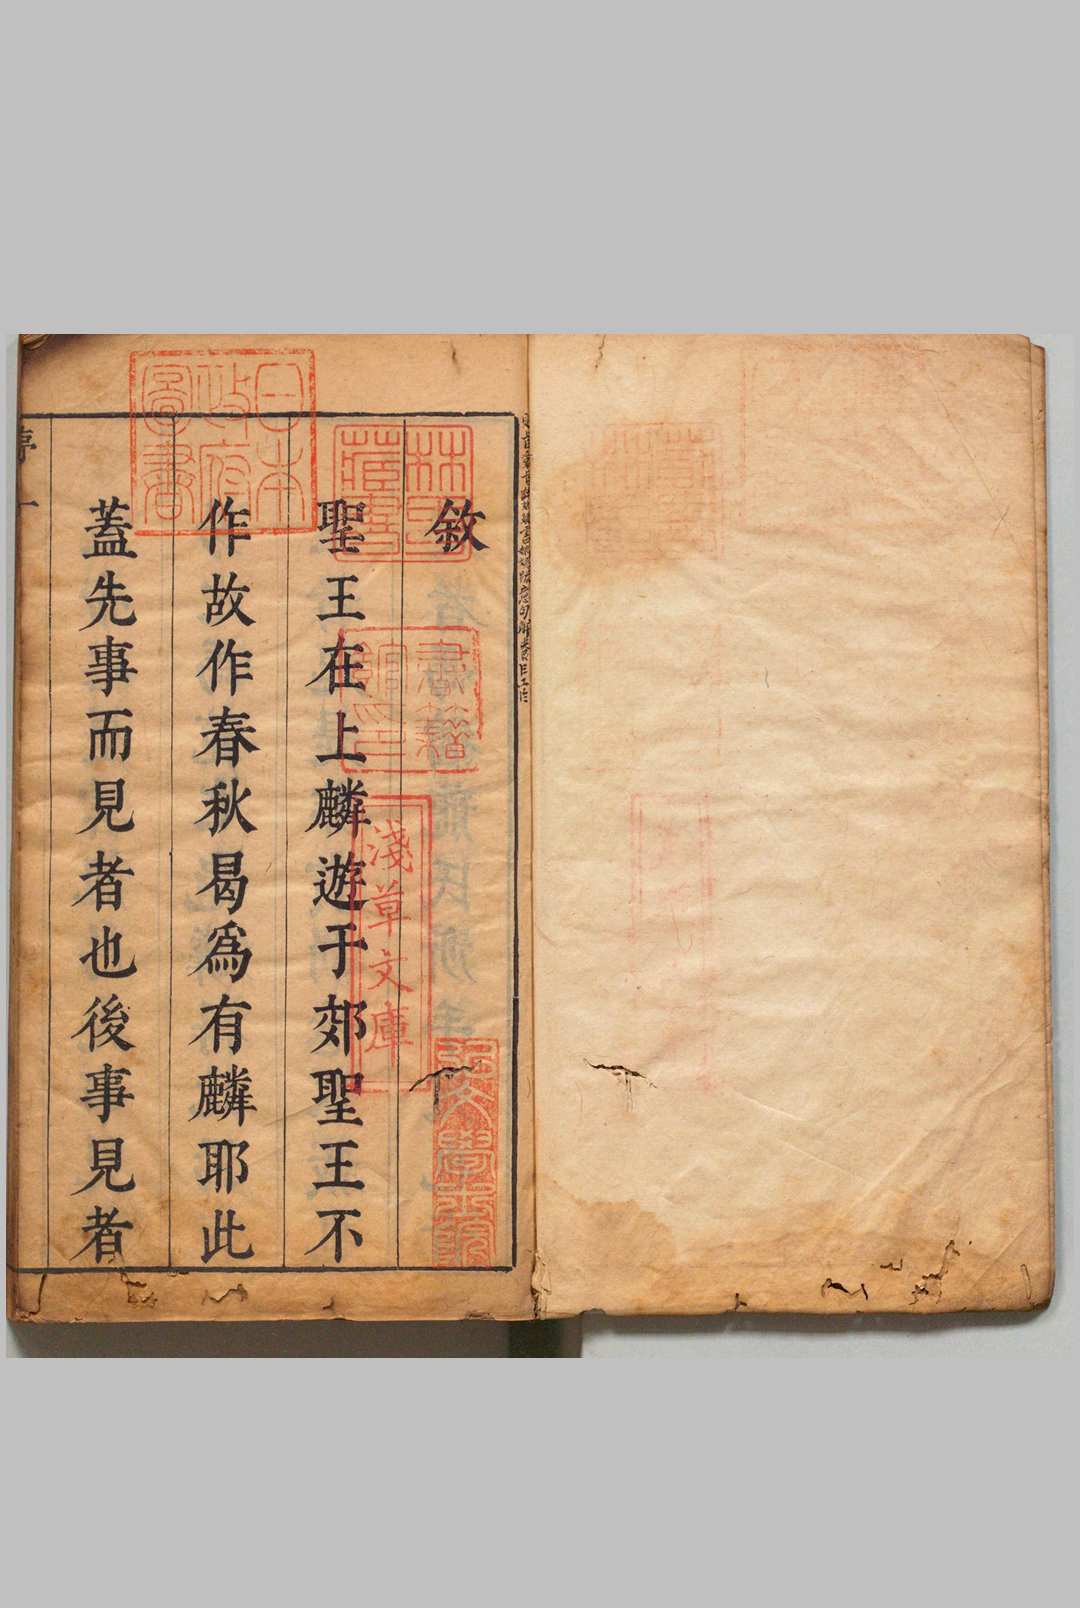 敘
聖王在上麟遊于郊聖王不
作故作春秋曷爲有麟耶此
蓋先事而見者也後事見者
序 一
日本
政府
圖書
林氏
藏書
書籍
館印
淺草文庫